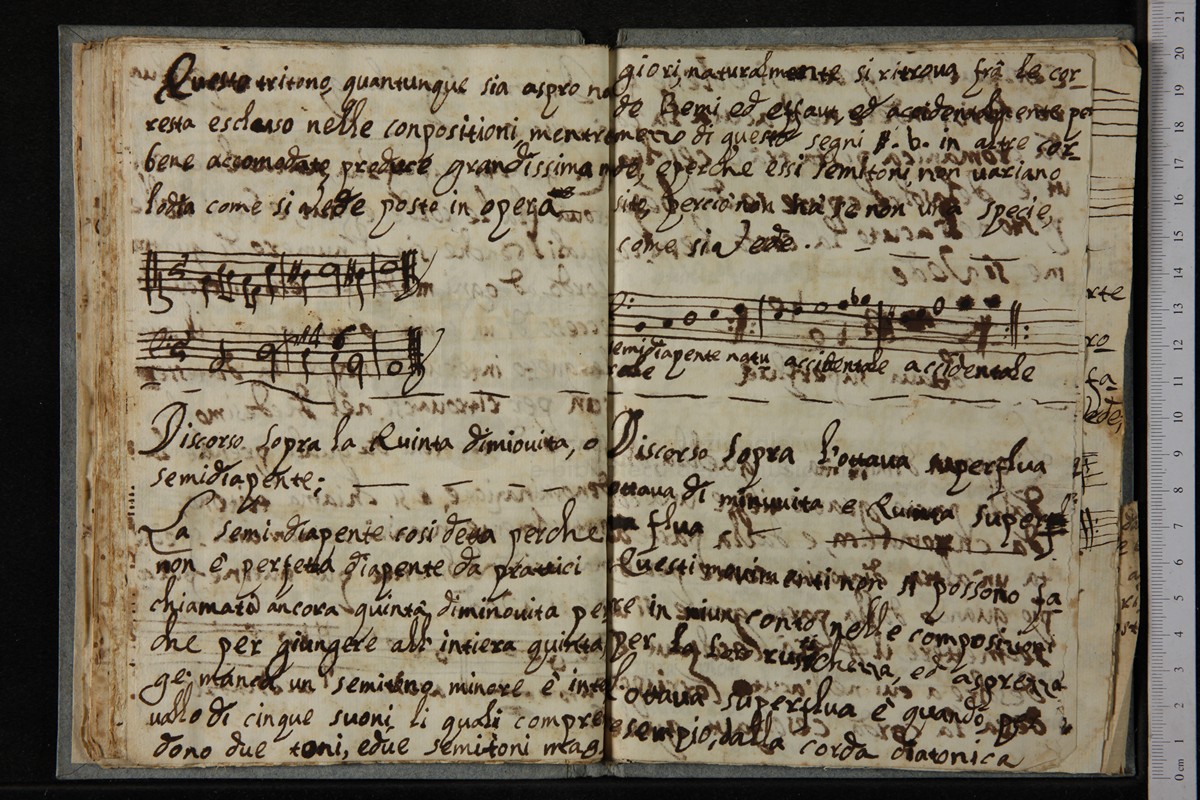 Questo tritono, quantunque sia aspro no
resta escluso nelle conpositioni, mentre
bene accomodate, produce grandissima m
lodia come si vede posto in opera
Discorso sopra la Quinta dimiouita, o
semidiapente;
La semi diapente cosi detta perche
non è perfetta diapente da prattici
chiamata ancora quinta diminouita per
che per giungere all' intiera quinta
gē manca un' semitono minore è inte
uallo di cinque suoni li quali compre
dono due toni, e due semitoni mag
giori, naturalmente si ritroua frà le cor-
de Bemi ed effaut ed accidentalmente pe
mezzo di questi segni #. b. in altre cor-
de, e perche essi semitoni non uariano
sito, perciò non se non una specie,
come sia Vede.
semidiapente natu accidentale accidentale
rale
Discorso sopra l'ottaua superflua
ottaua di minuuita e Quinta super
flua
Questi mouimenti non si possono fa
re in niun conto nelle compositioni
per la loro rustichezza, ed asprezza
L'ottaua superflua è quando, per
esempio, dalla corda diatonica
rte
ro
fa-
Vede,